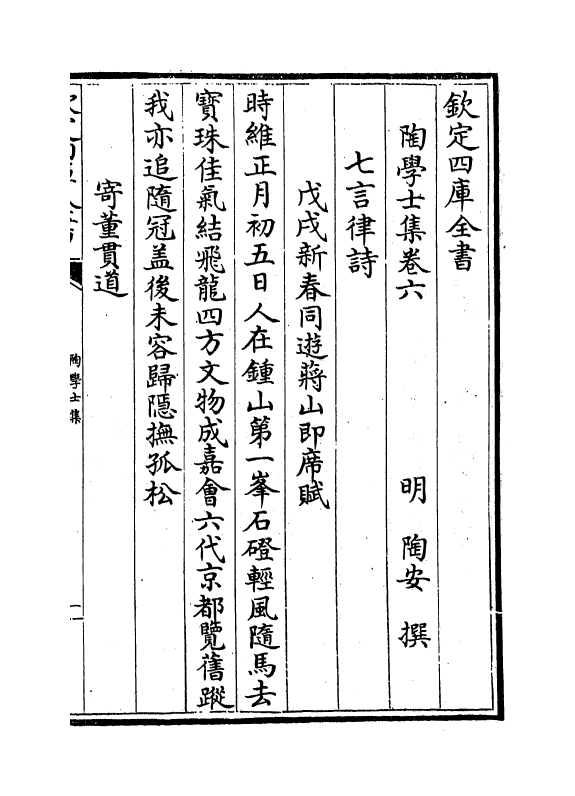 欽定四庫全書
陶學士集卷六　明　陶安　撰
七言律詩
戊戌新春同遊蔣山即席賦
時維正月初五日人在鍾山第一峯石磴輕風隨馬去
寶珠佳氣結飛龍四方文物成嘉會六代京都覽舊蹤
我亦追隨冠盖後未容歸隱撫孤松
寄董貫道
陶學士集
一